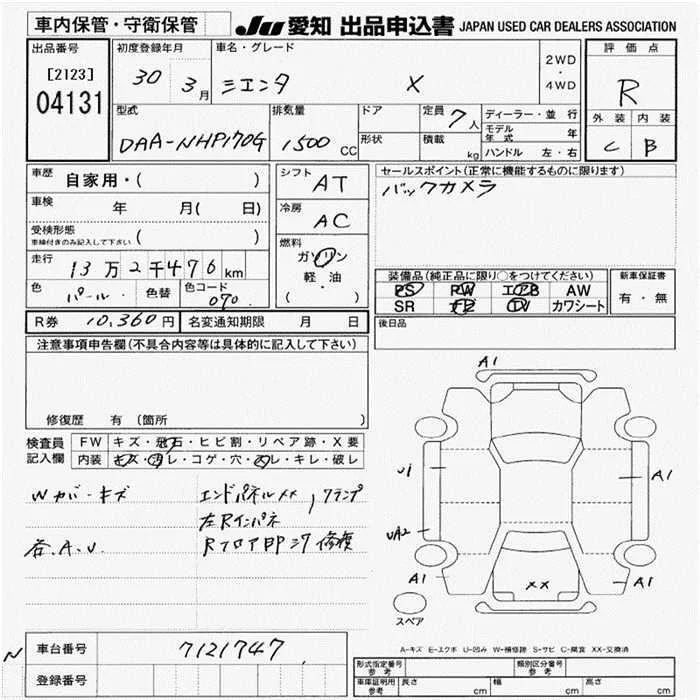 車内保管・守衛保管
JU 愛知 出品申込書 JAPAN USED CAR DEALERS ASSOCIATION
出品番号
[2123]
04131
初度登録年月
30 3月
車名・グレード
シエンタ X
2WD
・
4WD
評価点
R
外装 内装
C B
型式
DAA-NHP170G
排気量
1500 CC
ドア
形状
定員 7人
積載 kg
ディーラー・並行
モデル年式 年
ハンドル 左・右
車歴 自家用・( )
車検 年 月( 日)
受検形態
車検付きのみ記入して下さい ( )
走行 13万2千476km
色 パール 色替 色コード 070
シフト AT
冷房 AC
燃料
ガソリン
軽・油
( ・ )
セールスポイント(正常に機能するものに限ります)
バックカメラ
装備品(純正品に限り○をつけてください)
PS PW エアB AW
SR ナビ TV カワシート
新車保証書
有・無
R券 10,360円 名変通知期限 月 日
後日品
注意事項申告欄(不具合内容等は具体的に記入して下さい)
修復歴 有 (箇所 )
検査員
記入欄
FW キズ・飛石・ヒビ割・リペア跡・X要
内装 キズ・ヨゴレ・コゲ・穴・スレ・キレ・破レ
Wカバーキズ
各.A.U.
エンドパネルXX,クランプ
左Rインパネ
Rフロア凹ミ修復
A1
U1
UA2
A1
A1
XX
A1
スペア
A-キズ E-エクボ U-凹み W-補修跡 S-サビ C-腐食 XX-交換済
N 車台番号 7121747
登録番号
形式指定番号
参考
類別区分番号
参考
車庫証明用
参考
長さ cm 幅 cm 高さ cm